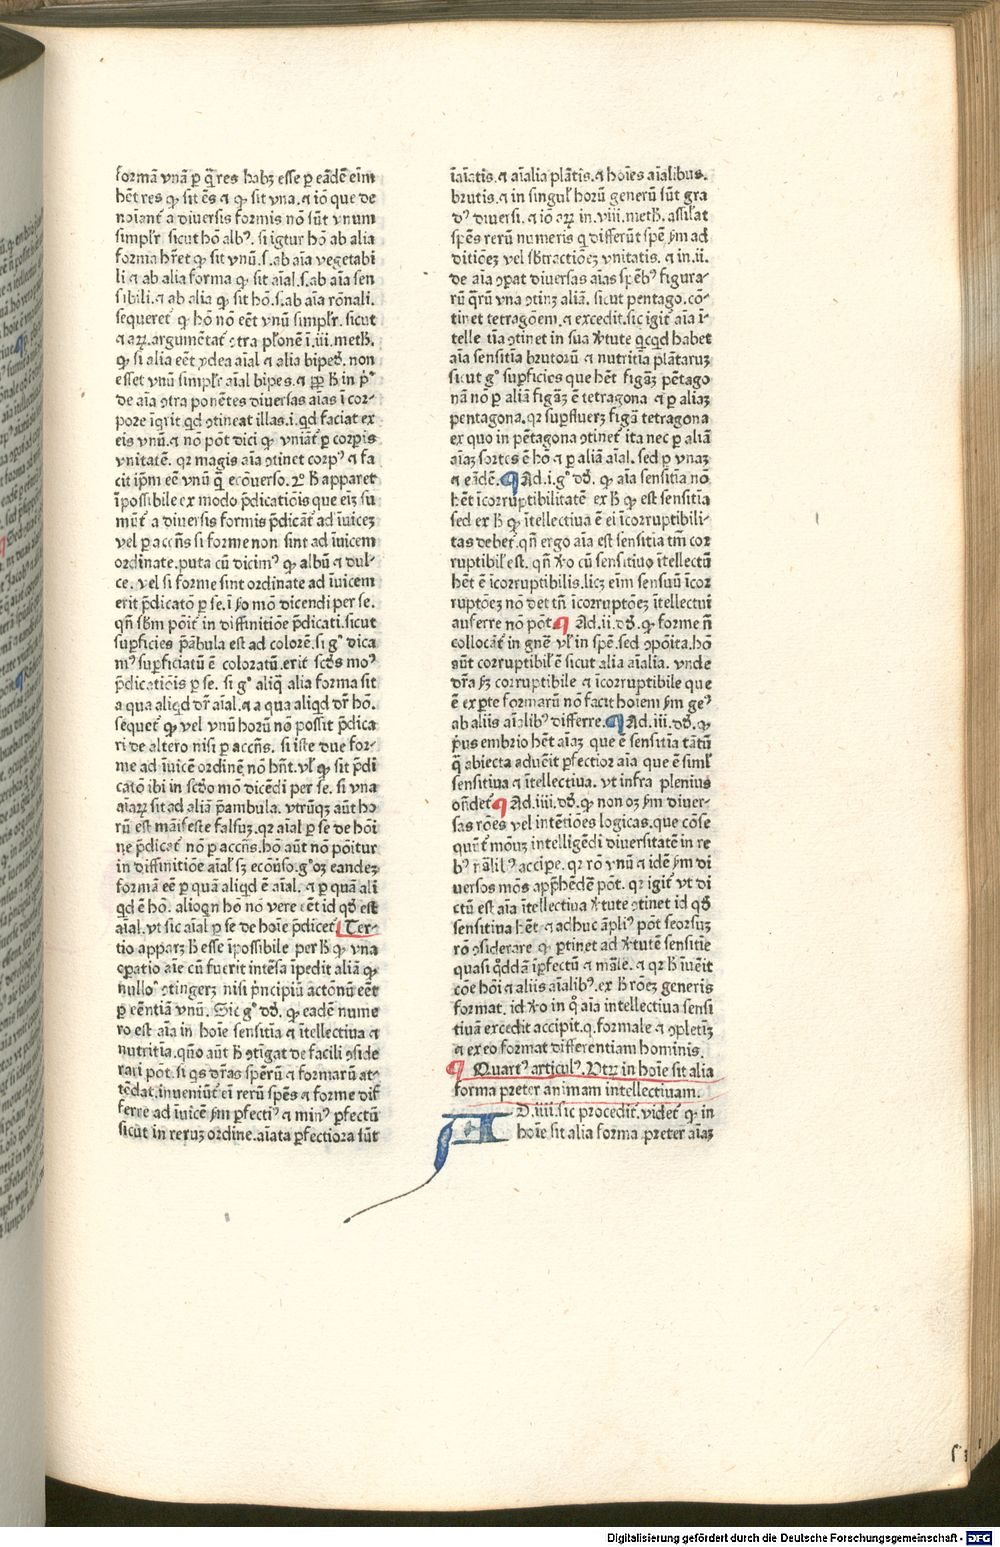 formã vnã ꝑ q̃ res habꝫ esse ꝑ eãdẽ eĩm
hẽt res ꝙ sit ẽs ⁊ ꝙ sit vna.⁊ iõ que de
noĩant̃ a diuersis formis nõ sũt vnum
simplr̃ sicut hõ albꝰ. si igitur hõ ab alia
forma hr̃et ꝙ sit vnũ.s.ab aĩa vegetabi
li ⁊ ab alia forma ꝙ sit aĩal.s.ab aĩa sen
sibili.⁊ ab alia ꝙ sit hõ.s.ab aĩa rõnali.
sequeret̃ ꝙ hõ nõ eẽt vnũ simplr̃. sicut
⁊ arꝝ.argumẽtat̃ ꝯtra plõnẽ ĩ.iii.meth̃.
ꝙ si alia eẽt ydea aĩal ⁊ alia bipeđ. non
esset vnũ simplr̃ aĩal bipes.⁊ ꝓꝑ h̃ in p̃ᵒ
de aĩa ꝯtra ponẽtes diuersas aĩas ĩ cor-
pore ĩqrit qd ꝯtineat illas.i.qd faciat ex
eis vnũ.⁊ nõ põt dici ꝙ vniãt̃ ꝑ corpis
vnitatẽ. qr magis aĩa ꝯtinet corpꝰ ⁊ fa
cit ip̃m eẽ vnũ q̃ ecõuerso.2ᵒ h̃ apparet
ĩpossibile ex modo p̃dicatiõis que eiꝫ su
mũt̃ a diuersis formis p̃dicãt̃ ad ĩuicẽ
vel ꝑ accñs si forme non sint ad ĩuicem
ordinate.puta cũ dicimꝰ ꝙ albũ ẽ dul-
ce. vel si forme sint ordinate ad ĩuicem
erit p̃dicatõ ꝑ se.ĩ ẜo mõ dicendi per se.
qñ sb̃m põit̃ in diffinitiõe p̃dicati.sicut
suꝑficies p̃ãbula est ad colorẽ.si gᵒ dica
mꝰ suꝑficiatũ ẽ coloratũ.erit scđs moꝰ
p̃dicatiõis ꝑ se. si gᵒ aliq̃ alia forma sit
a qua aliqd dr̃ aĩal.⁊ a qua aliqd dr̃ hõ.
sequet̃ ꝙ vel vnũ horũ nõ possit p̃dica
ri de altero nisi ꝑ accñs. si iste due for-
me ad ĩuicẽ ordinẽ nõ hñt.vl̃ ꝙ sit p̃di
catõ ibi in scđo mõ dicẽdi per se. si vna
aĩaꝝ sit ad aliã p̃ambula. vtrũqꝫ aũt ho
rũ est mãifeste falsuꝫ.qr aĩal ꝑ se de hõi
ne p̃dicat̃ nõ ꝑ accñs.hõ aũt nõ põitur
in diffinitiõe aĩal̃ sꝫ ecõũso.gᵒ oꝫ eandeꝫ
formã eẽ ꝑ quã aliqd ẽ aĩal. ⁊ ꝑ quã ali
qd ẽ hõ. alioqn hõ nõ vere eẽt id qđ est
aĩal.vt sic aĩal ꝑ se de hoĩe p̃dicet̃. Ter-
tio apparꝫ h̃ esse ĩpossibile per h̃ ꝙ vna
oꝑatio aĩe cũ fuerit intẽsa ĩpedit aliã ꝙ
nulloᵒ ꝯtingerꝫ nisi p̃ncipiũ actõnũ eẽt
ꝑ eẽntiã vnũ. Sic gᵒ đđ. ꝙ eadẽ nume
ro est aĩa in hoĩe sensitĩa ⁊ ĩtellectiua ⁊
nutritĩa.qñõ aũt h̃ ꝯtĩgat de facili ꝯside
rari põt.si qs dr̃as sperũ ⁊ formarũ at-
tẽdat.inueniũt̃ ei rerũ spẽs ⁊ forme dif
ferre ad ĩuicẽ ẜm ꝑfectiꝰ ⁊ minꝰ ꝑfectũ
sicut in reruꝫ ordine.aĩata ꝑfectiora sũt
ĩaĩatis.⁊ aĩalia plãtis.⁊ hoĩes aĩalibus.
brutis.⁊ in singul̃ horũ generũ sũt gra
dꝰ diuersi.⁊ iõ arꝝ in.viii.meth̃.assil̃at
spẽs rerũ numeris q̃ differũt spẽ ẜm ad
ditiõeꝫ vel sb̃tractiõeꝫ vnitatis.⁊ in.ii.
de aĩa ꝯꝑat diuersas aĩas spẽbꝰ figura-
rũ q̃rũ vna ꝯtinꝫ aliã. sicut pentago.cõ-
tinet tetragõem.⁊ excedit.sic igit̃ aĩa ĩ-
telle tĩa ꝯtinet in sua v̓tute q̃cqd habet
aĩa sensitĩa brutorũ ⁊ nutritĩa plãtaruꝫ
sicut gᵒ suꝑficies que hẽt figãꝫ pẽtago
nã nõ ꝑ aliã figãꝫ ẽ tetragona ⁊ ꝑ aliaꝫ
pentagona.qr suꝑfluerꝫ figã tetragona
ex quo in pẽtagona ꝯtinet̃ ita nec ꝑ aliã
aĩaꝫ sortes ẽ hõ ⁊ ꝑ aliã aĩal. sed ꝑ vnaꝫ
⁊ eãdẽ. ¶ Ad.i.gᵒ đđ. ꝙ aĩa sensitĩa nõ
hẽt ĩcorruptibilitatẽ ex h̃ ꝙ est sensitĩa
sed ex h̃ ꝙ ĩtellectiua ẽ ei ĩcorruptibili-
tas debet̃. qñ ergo aĩa est sensitĩa tm̃ cor
ruptibil̃ est. qñ v̓o cũ sensitiuo ĩtellectũ
hẽt ẽ ĩcorruptibilis.licꝫ eĩm sensuũ ĩcor
ruptõeꝫ nõ det tñ ĩcorruptõeꝫ ĩtellectui
auferre nõ põt. ¶ Ad.ii.đđ.ꝙ forme ñ
collocãt̃ in gñe vl̃ in spẽ.sed ꝯpõita.hõ
aũt corruptibil̃ ẽ sicut alia aĩalia. vnde
dr̃a ẜꝫ corruptibile ⁊ ĩcorruptibile que
ẽ ex ꝑte formarũ nõ facit hoĩem ẜm geꝰ
ab aliis aĩalibꝰ differre. ¶ Ad.iii.đđ.ꝙ
p̃us embrio hẽt aĩaꝫ que ẽ sensitĩa tãtũ
q̃ abiecta aduẽit ꝑfectior aĩa que ẽ siml̃
sensitiua ⁊ ĩtellectiua. vt infra plenius
oñdet̃. ¶ Ad.iiii.đđ.ꝙ non oꝫ ẜm diuer-
sas rões vel intẽtiões logicas.que cõse
quũt̃ mõuꝫ intelligẽdi diuersitatẽ in re
bꝰ nãlibꝰ accipe.qr rõ vnũ ⁊ idẽ ẜm di
uersos mõs app̃hẽdẽ põt. qr igit̃ vt di
ctũ est aĩa ĩtellectiua v̓tute ꝯtinet id qđ
sensitina hẽt ⁊ adhuc ãpliꝰ põt seorsuꝫ
rõ ꝯsiderare ꝙ ꝑtinet ad v̓tutẽ sensitĩe
quasi qddã ĩꝑfectũ ⁊ mãle.⁊ qr h̃ ĩuẽit
cõe hõi ⁊ aliis aĩalibꝰ.ex h̃ rõeꝫ generis
format. id v̓o in q̃ aĩa intellectiua sensi
tiuã excedit accipit.q.formale ⁊ ꝯpletĩꝫ
⁊ ex eo format differentiam hominis.
¶ Quartꝰ articulꝰ. Vtꝝ in hoĩe sit alia
forma preter animam intellectiuam.
AD.iiii.sic procedit̃. videt̃ ꝙ in
hoĩe sit alia forma preter aĩaꝫ
Digitalisierung gefördert durch die Deutsche Forschungsgemeinschaft - DFG